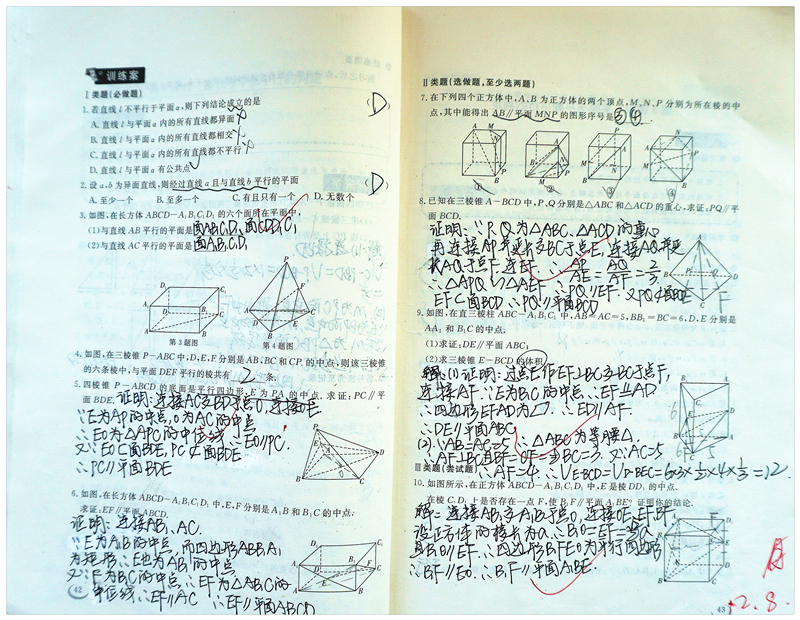 训练案
Ⅰ类题(必做题)
1.若直线l不平行于平面α,则下列结论成立的是 (D)
A.直线l与平面α内的所有直线都异面
B.直线l与平面α内的所有直线都相交
C.直线l与平面α内的所有直线都不平行
D.直线l与平面α有公共点
2.设a,b为异面直线,则经过直线a且与直线b平行的平面 (D)
A.至少一个 B.至多一个 C.有且只有一个 D.无数个
3.如图,在长方体ABCD-A₁B₁C₁D₁的六个面所在平面中,
(1)与直线AB平行的平面是面A₁B₁C₁D₁、面CDD₁C₁
(2)与直线AC平行的平面是面A₁B₁C₁D₁
第3题图 第4题图
4.如图,在三棱锥P-ABC中,D,E,F分别是AB,BC和CP的中点,则该三棱锥
的六条棱中,与平面DEF平行的棱共有 2 条.
5.四棱锥P-ABCD的底面是平行四边形,E为PA的中点,求证:PC∥平
面BDE.证明:连接AC交BD于点O,连接OE.
∵E为AP的中点,O为AC的中点
∴EO为△APC的中位线 ∴EO∥PC.
又∵EO⊂面BDE,PC⊄面BDE
∴PC∥平面BDE
6.如图,在长方体ABCD-A₁B₁C₁D₁中,E,F分别是A₁B和B₁C的中点.
求证:EF∥平面ABCD.
证明:连接AB₁,AC.
∵E为A₁B的中点,而四边形ABB₁A₁
为矩形 ∴E也为AB₁的中点
又∵F为B₁C的中点,∴EF为△AB₁C的
中位线 ∴EF∥AC ∴EF∥平面ABCD
42
Ⅱ类题(选做题,至少选两题)
7.在下列四个正方体中,A、B为正方体的两个顶点,M、N、P分别为所在棱的中
点,其中能得出AB∥平面MNP的图形序号是
① ② ③ ④
8.已知在三棱锥A-BCD中,P,Q分别是△ABC和△ACD的重心,求证:PQ∥平
面BCD.
证明:∵P,Q为△ABC,△ACD的重心
再连接AP并延长交BC于点E,连接AQ并延
长AQ于点F.连EF ∴AP/AE=AQ/AF=2/3
∴△APQ∽△AEF ∴PQ∥EF.又PQ⊄面BCD
EF⊂面BCD ∴PQ∥平面BCD
9.如图,在直三棱柱ABC-A₁B₁C₁中,AB=AC=5,BB₁=BC=6,D,E分别是
AA₁和B₁C的中点:
(1)求证:DE∥平面ABC;
(2)求三棱锥E-BCD的体积.
(1)证明:过点E作EF⊥BC交BC于点F,
连接AF.∵E为B₁C的中点,∴EF⊥AD
∴四边形EFAD为▱.∴ED∥AF.
∴DE∥平面ABC
(2).∵AB=AC=5 ∴△ABC为等腰△.
∴AF⊥BC且BF=CF=½BC=3.又∵AC=5
∴AF=4.∴V E-BCD=V D-BEC=6×3×½×4×⅓=12
Ⅲ类题(尝试题)
10.如图所示,在正方体ABCD-A₁B₁C₁D₁中,E是棱DD₁的中点.
在棱C₁D₁上是否存在一点F,使B₁F∥平面A₁BE?证明你的结论.
解:连接AB₁交A₁B于点O,连接OE,EF,BF,
设正方体的棱长为a.
∴四边形B₁FEO为平行四边形
∴B₁F∥EO.∴B₁F∥平面A₁BE.
43
2.8.